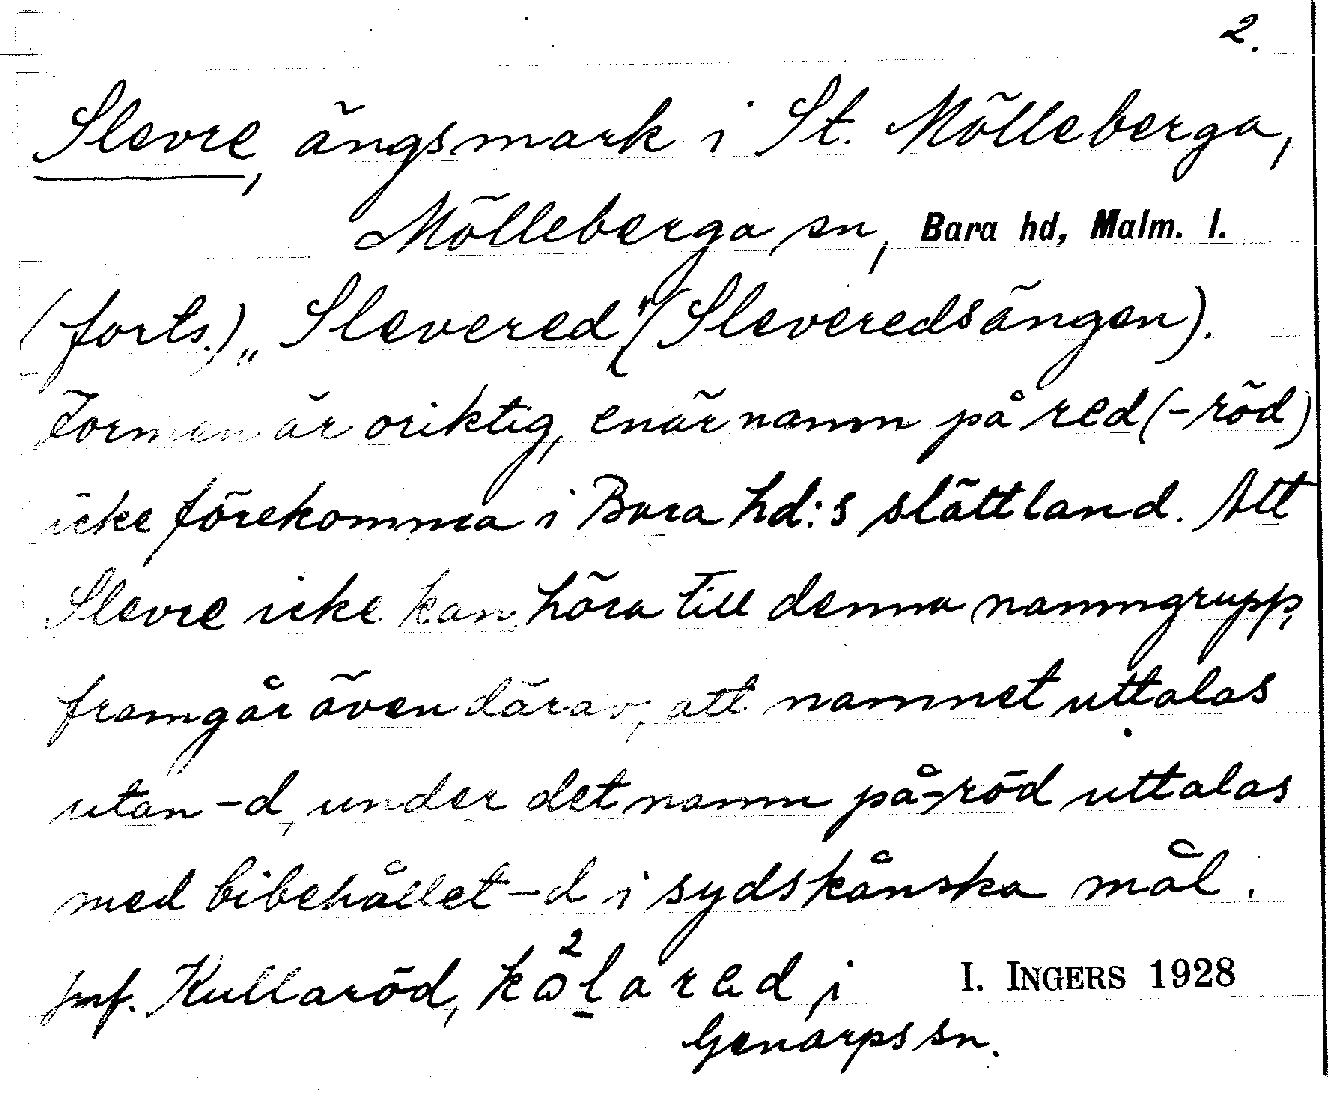 2.
Slevre, ängsmark i St. Mölleberga,
Mölleberga sn, Bara hd, Malm. l.
(forts.) „Slevered" (Sleveredsängen).
Formen är oriktig, enär namn på red (-röd)
icke förekomma i Bara hd:s slättland. Att
Slevre icke kan höra till denna namngrupp,
framgår även därav, att namnet uttalas
utan -d, under det namn på -röd uttalas
med bibehållet -d i sydskånska mål.
Jmf. Kullaröd, i
I. INGERS 1928
Genarps sn.